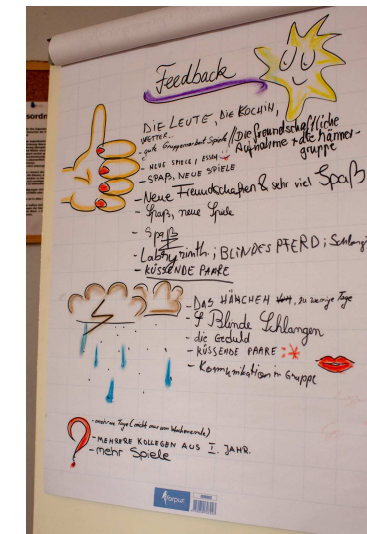 Feedback
DIE LEUTE, DIE KÖCHIN,
WETTER..
- gute Gruppenarbeit, Spiele // Die freundschaftliche
Aufnahme + die Männer-
gruppe
- NEUE SPIELE / ESSEN
- SPAß, NEUE SPIELE
- Neue Freundschaften & sehr viel Spaß
- Spaß, neue Spiele
- Spaß
- Labyrinth; BLINDES PFERD; Schlang
- KÜSSENDE PAARE
- DAS, zu wenige Tage
- Blinde Schlangen
die Geduld
- KÜSSENDE PAARE :*
- Kommunikation in Gruppe
?
- mehr Tage (nicht nur am Wochenende)
- MEHRERE KOLLEGEN AUS I. JAHR.
- mehr Spiele
forpus